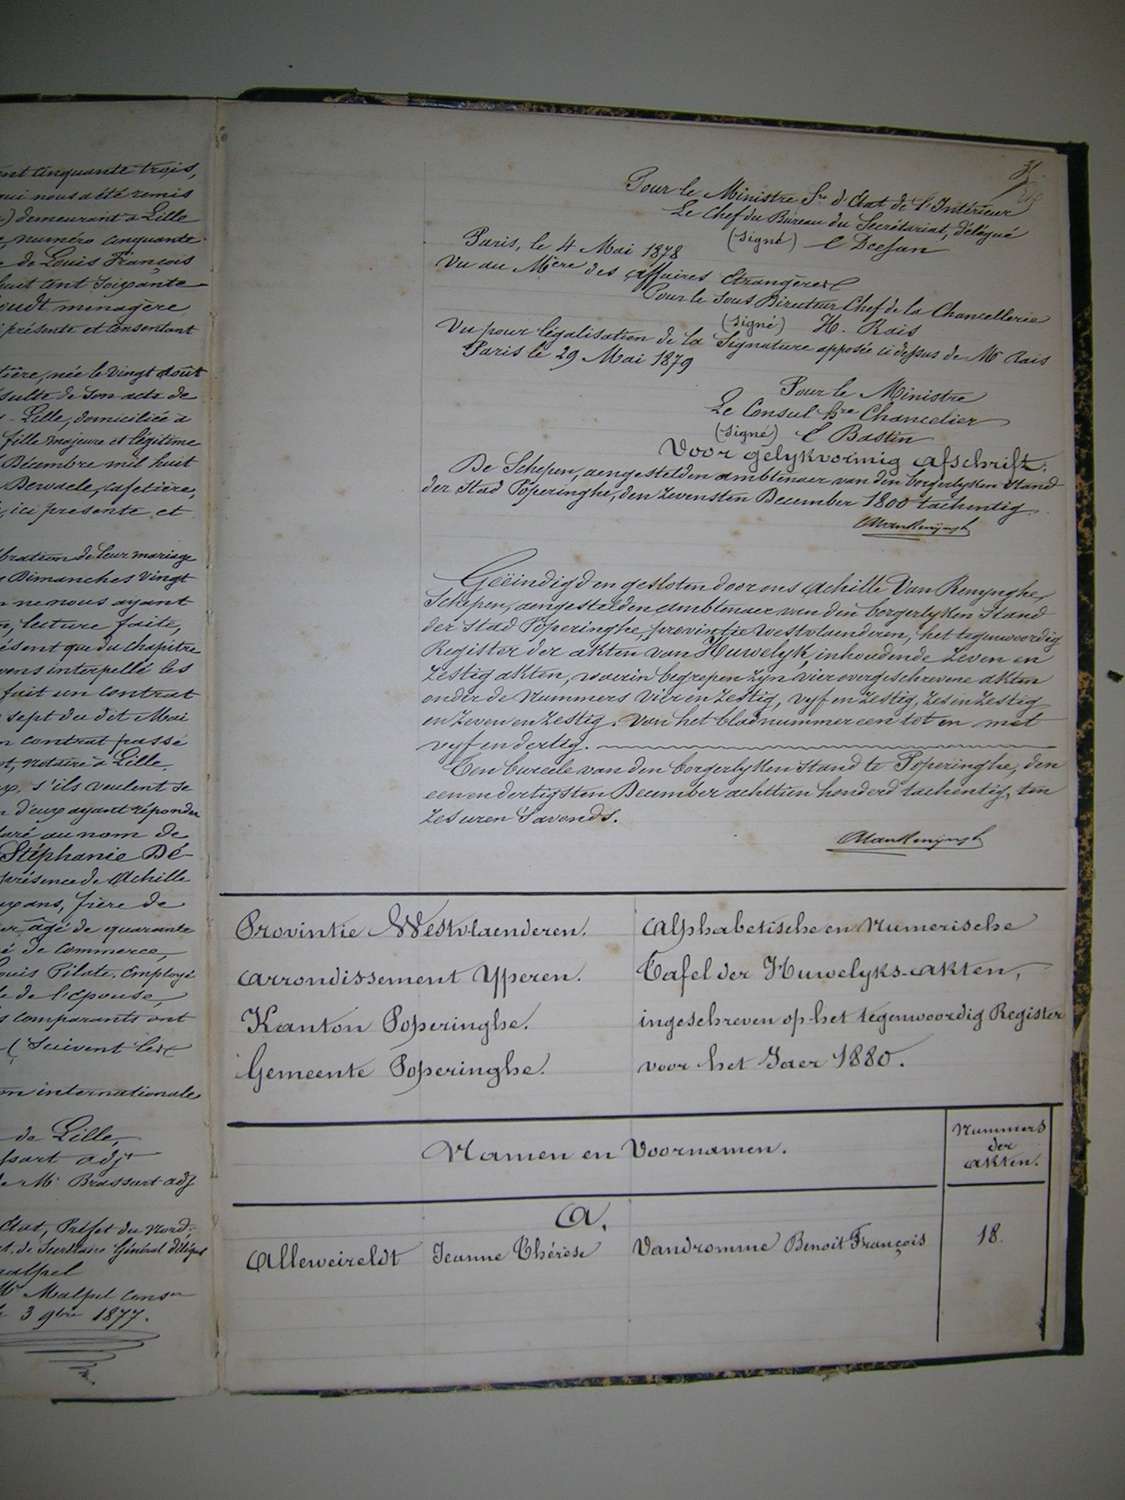 ent cinquante trois,
qui nous a été remis
) demeurant à Lille
numéro cinquante
de Louis François
huit cent soixante
oudt ménagère
présente et consentant
tière, née le vingt Août
sulte de son acte de
Lille, domiciliée à
fille majeure et légitime
Décembre mil huit
Dewaele, cafetière,
ici présente et
bration de leur mariage
Dimanches vingt
ne nous ayant
lecture faite,
ésent que du chapitre
vons interpellé les
fait un contrat
sept du dit Mai
n contrat passé
t, notaire à Lille
s'ils veulent se
n d'eux ayant répondu
laré au nom de
Stéphanie Dé-
présence de Achille
ans, frère de
âgé de quarante
é de commerce,
Louis Pilate, employé
de l'épouse,
s comparants ont
(Suivent les
on internationale
de Lille,
ssart adjt
de Mr Brassart adj
Etat, Préfet du Nord,
de Secrétaire Général délégué
Malpel
Mr Malpel consr
3 9bre 1877.
Pour le Ministre Sre d'Etat de l'Intérieur
Le Chef du Bureau du Secrétariat, délégué
(signé)
Paris, le 4 Mai 1878
Vu au Mère des Affaires Etrangères
Pour le Sous Directeur Chef de la Chancellerie
(signé) H. Rais
Vu pour légalisation de la Signature apposée ci dessus de Mr Rais
Paris le 29 Mai 1879
Pour le Ministre
Le Consul Chancelier
(signé) E Bastin
Voor gelykvormig afschrift:
De Schepen, aengestelden ambtenaer van den borgerlyken Stand
der Stad Poperinghe, den zevensten December 1800 tachentig
AVanRenyngh
Geëindigd en gesloten door ons Achille Van Renynghe,
Schepen, aengestelden ambtenaer van den borgerlyken Stand
der Stad Poperinghe, provintie Westvlaenderen, het tegenwoordig
Register der akten van Huwelyk, inhoudende zeven en
zestig akten, waerin begrepen zyn vier overgeschrevene akten
onder de nummers vier en zestig, vyf en zestig, zes en zestig
en zeven en zestig. Van het blad nummer een tot en met
vyf en dertig.
Ten bureele van den borgerlyken Stand te Poperinghe, den
een en dertigsten December achttien honderd tachentig, ten
zes uren s'avonds.
AVanRenyngh
Provintie Westvlaenderen.
Arrondissement Yperen.
Kanton Poperinghe.
Gemeente Poperinghe.
Alphabetische en Numerische
Tafel der Huwelyks-akten,
ingeschreven op het tegenwoordig Register
voor het Jaer 1880.
Namen en Voornamen.
Nummers
der
akten.
A.
Alleweireldt Jeanne Thérèse Vandromme Benoit François 18.